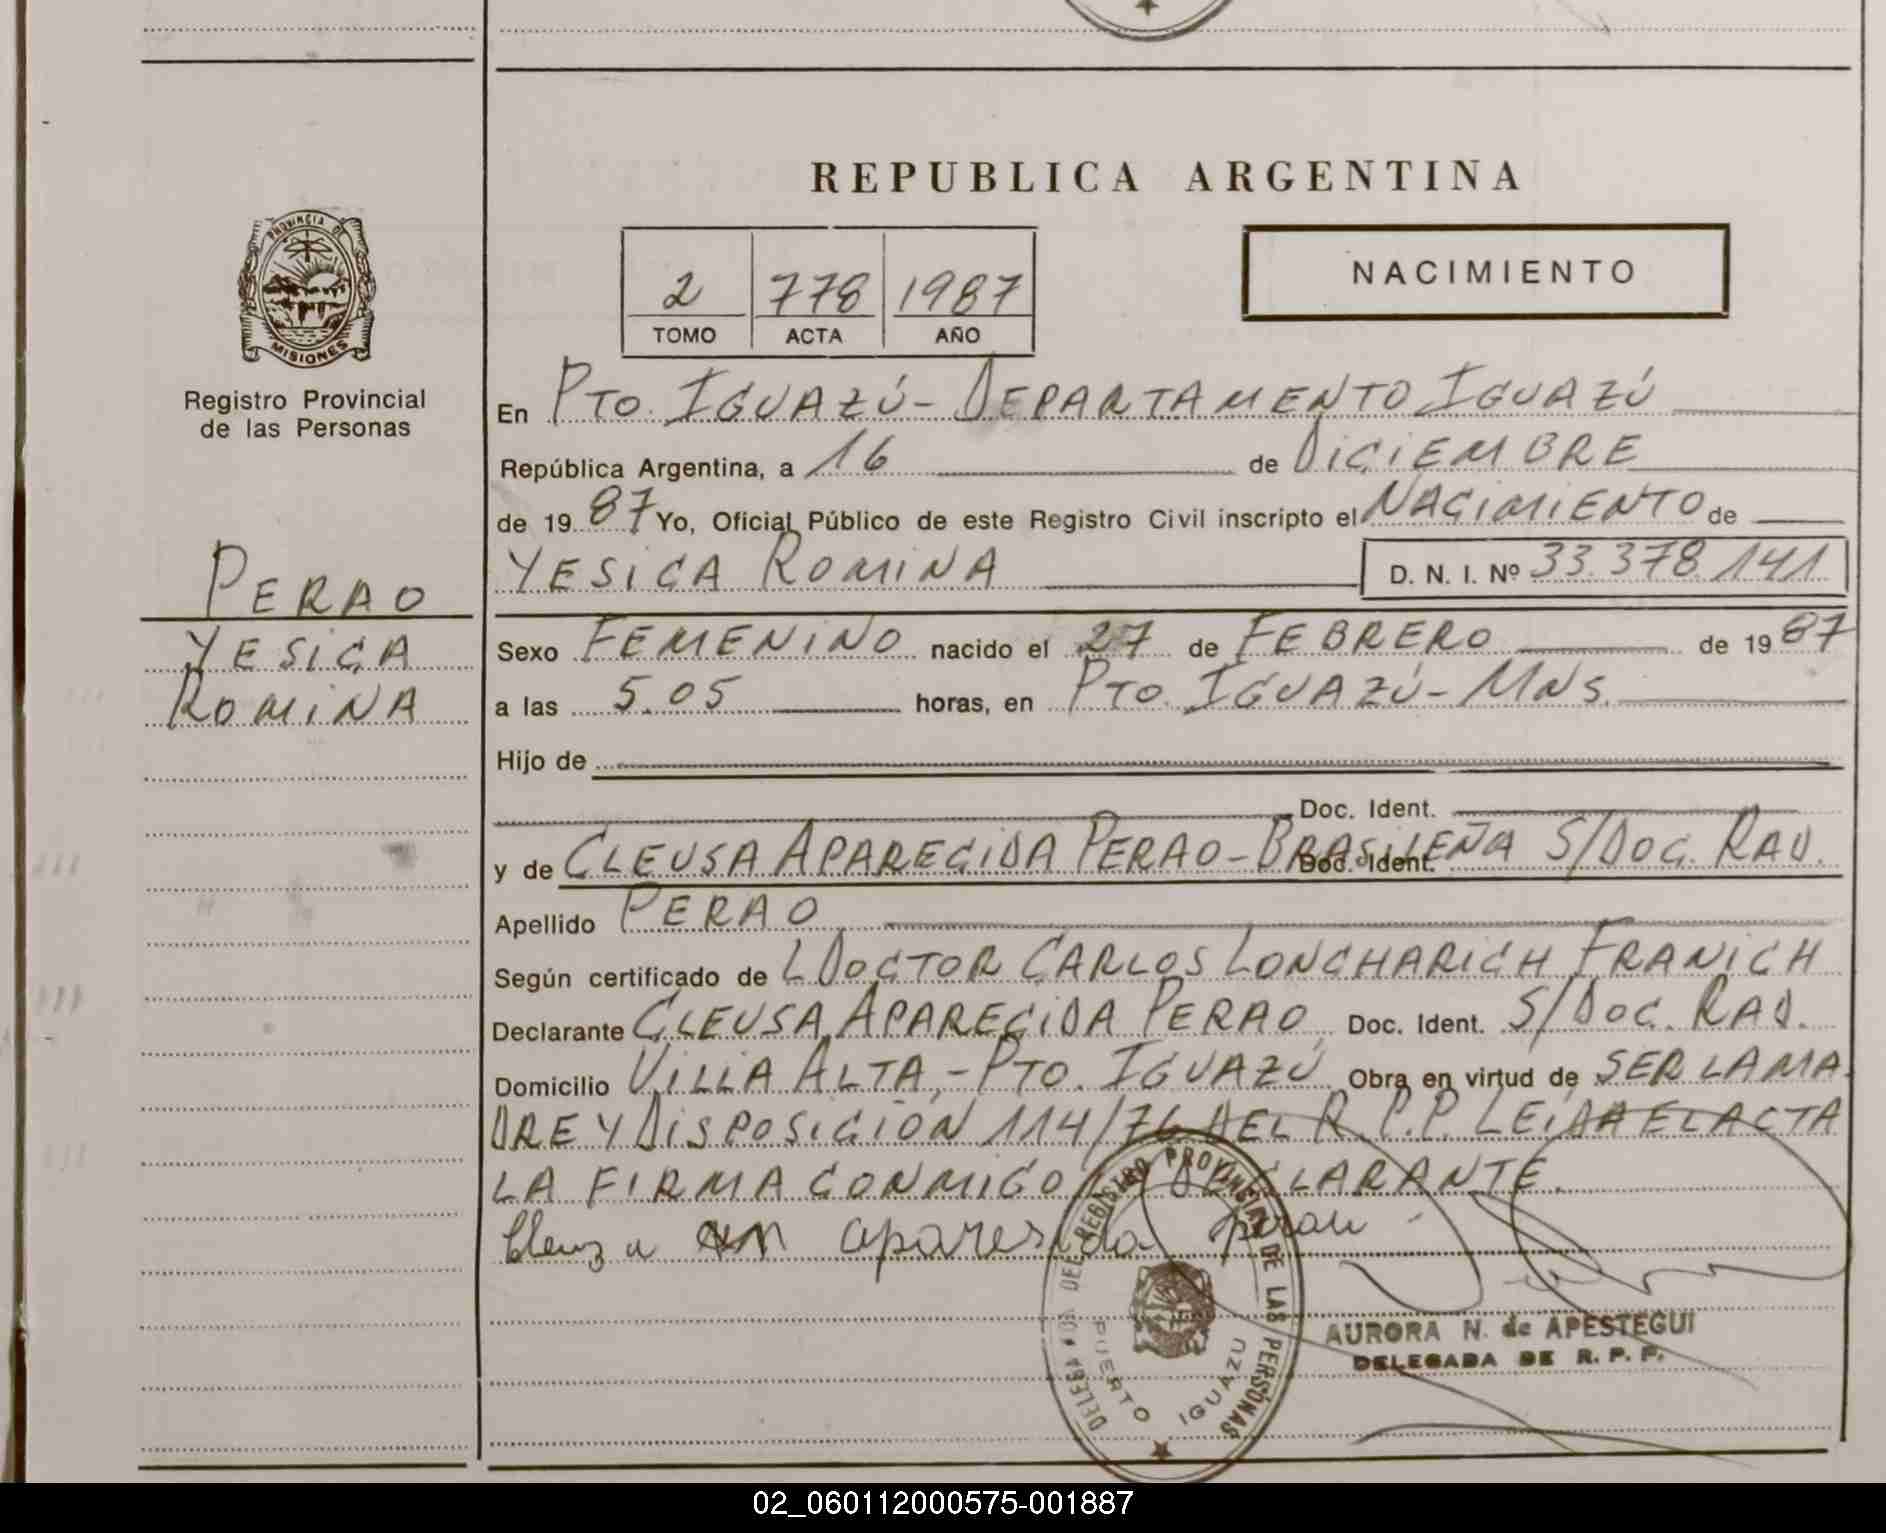 REPUBLICA ARGENTINA
PROVINCIA DE MISIONES
Registro Provincial
de las Personas
2 778 1987
TOMO ACTA AÑO
NACIMIENTO
En PTO. IGUAZÚ - DEPARTAMENTO IGUAZÚ
República Argentina, a 16 de DICIEMBRE
de 1987 Yo, Oficial Público de este Registro Civil inscripto el NACIMIENTO de
YESICA ROMINA D. N. I. Nº 33.378.141
PERAO
YESICA
ROMINA
Sexo FEMENINO nacido el 27 de FEBRERO de 1987
a las 5.05 horas, en PTO. IGUAZÚ - MNS.
Hijo de
Doc. Ident.
y de CLEUSA APARECIDA PERAO - BRASILEÑA Doc. Ident. S/DOC. RAD.
Apellido PERAO
Según certificado de L DOCTOR CARLOS LONCHARICH FRANICH
Declarante CLEUSA APARECIDA PERAO Doc. Ident. S/DOC. RAD.
Domicilio VILLA ALTA, - PTO. IGUAZÚ Obra en virtud de SER LA MA-
DRE Y DISPOSICIÓN 114/76 DEL R.P.P. LEIDA EL ACTA
LA FIRMA CONMIGO LA DECLARANTE.
aparesida perau
DELEGACION DEL REGISTRO PROVINCIAL DE LAS PERSONAS
PUERTO IGUAZU
AURORA N. de APESTEGUI
DELEGADA DE R. P. P.
02_060112000575-001887